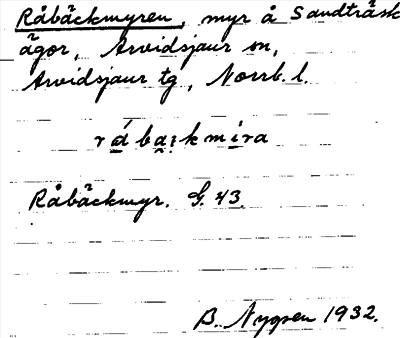 Råbäckmyren, myr å Sandträsk
ägor, Arvidsjaur sn,
Arvidsjaur tg, Norrb. l.
rába̤i̯kmi̱ra
Råbäckmyr. G. 43.
B. 1932.